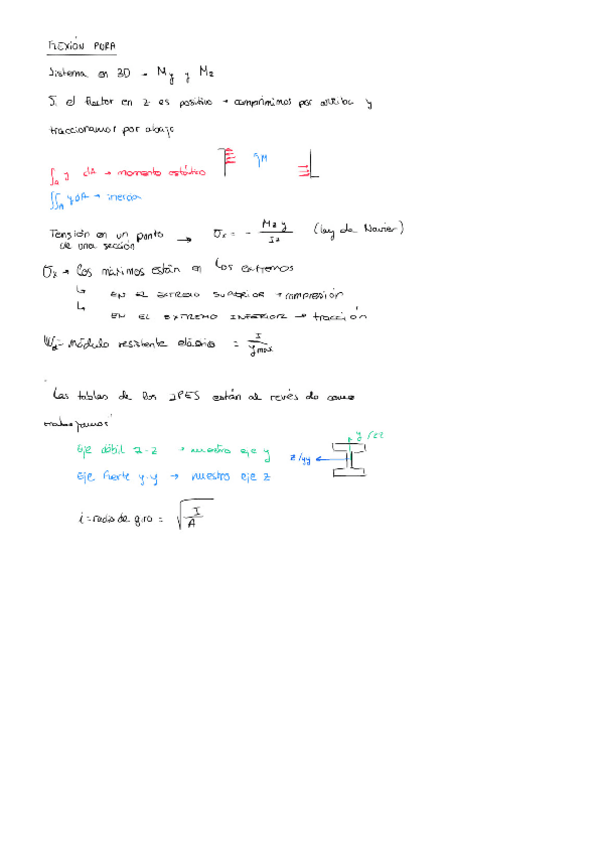 FLEXIÓN PURA
Sistema en 3D → My y Mz
Si el flector en z es positivo → comprimimos por arriba y
traccionamos por abajo
∫A y dA → momento estático
M
∬A y dA → inercia
Tensión en un punto de una sección → σx = - Mz y / Iz (ley de Navier)
σx → los máximos están en los extremos
↳ EN EL EXTREMO SUPERIOR → compresión
↳ EN EL EXTREMO INFERIOR → tracción
módulo resistente elástico = I / ymax
Las tablas de los IPES están al revés de como
trabajamos
Eje débil z-z → nuestro eje y
y /zz
z/yy
Eje fuerte y-y → nuestro eje z
i = radio de giro = √(I / A)